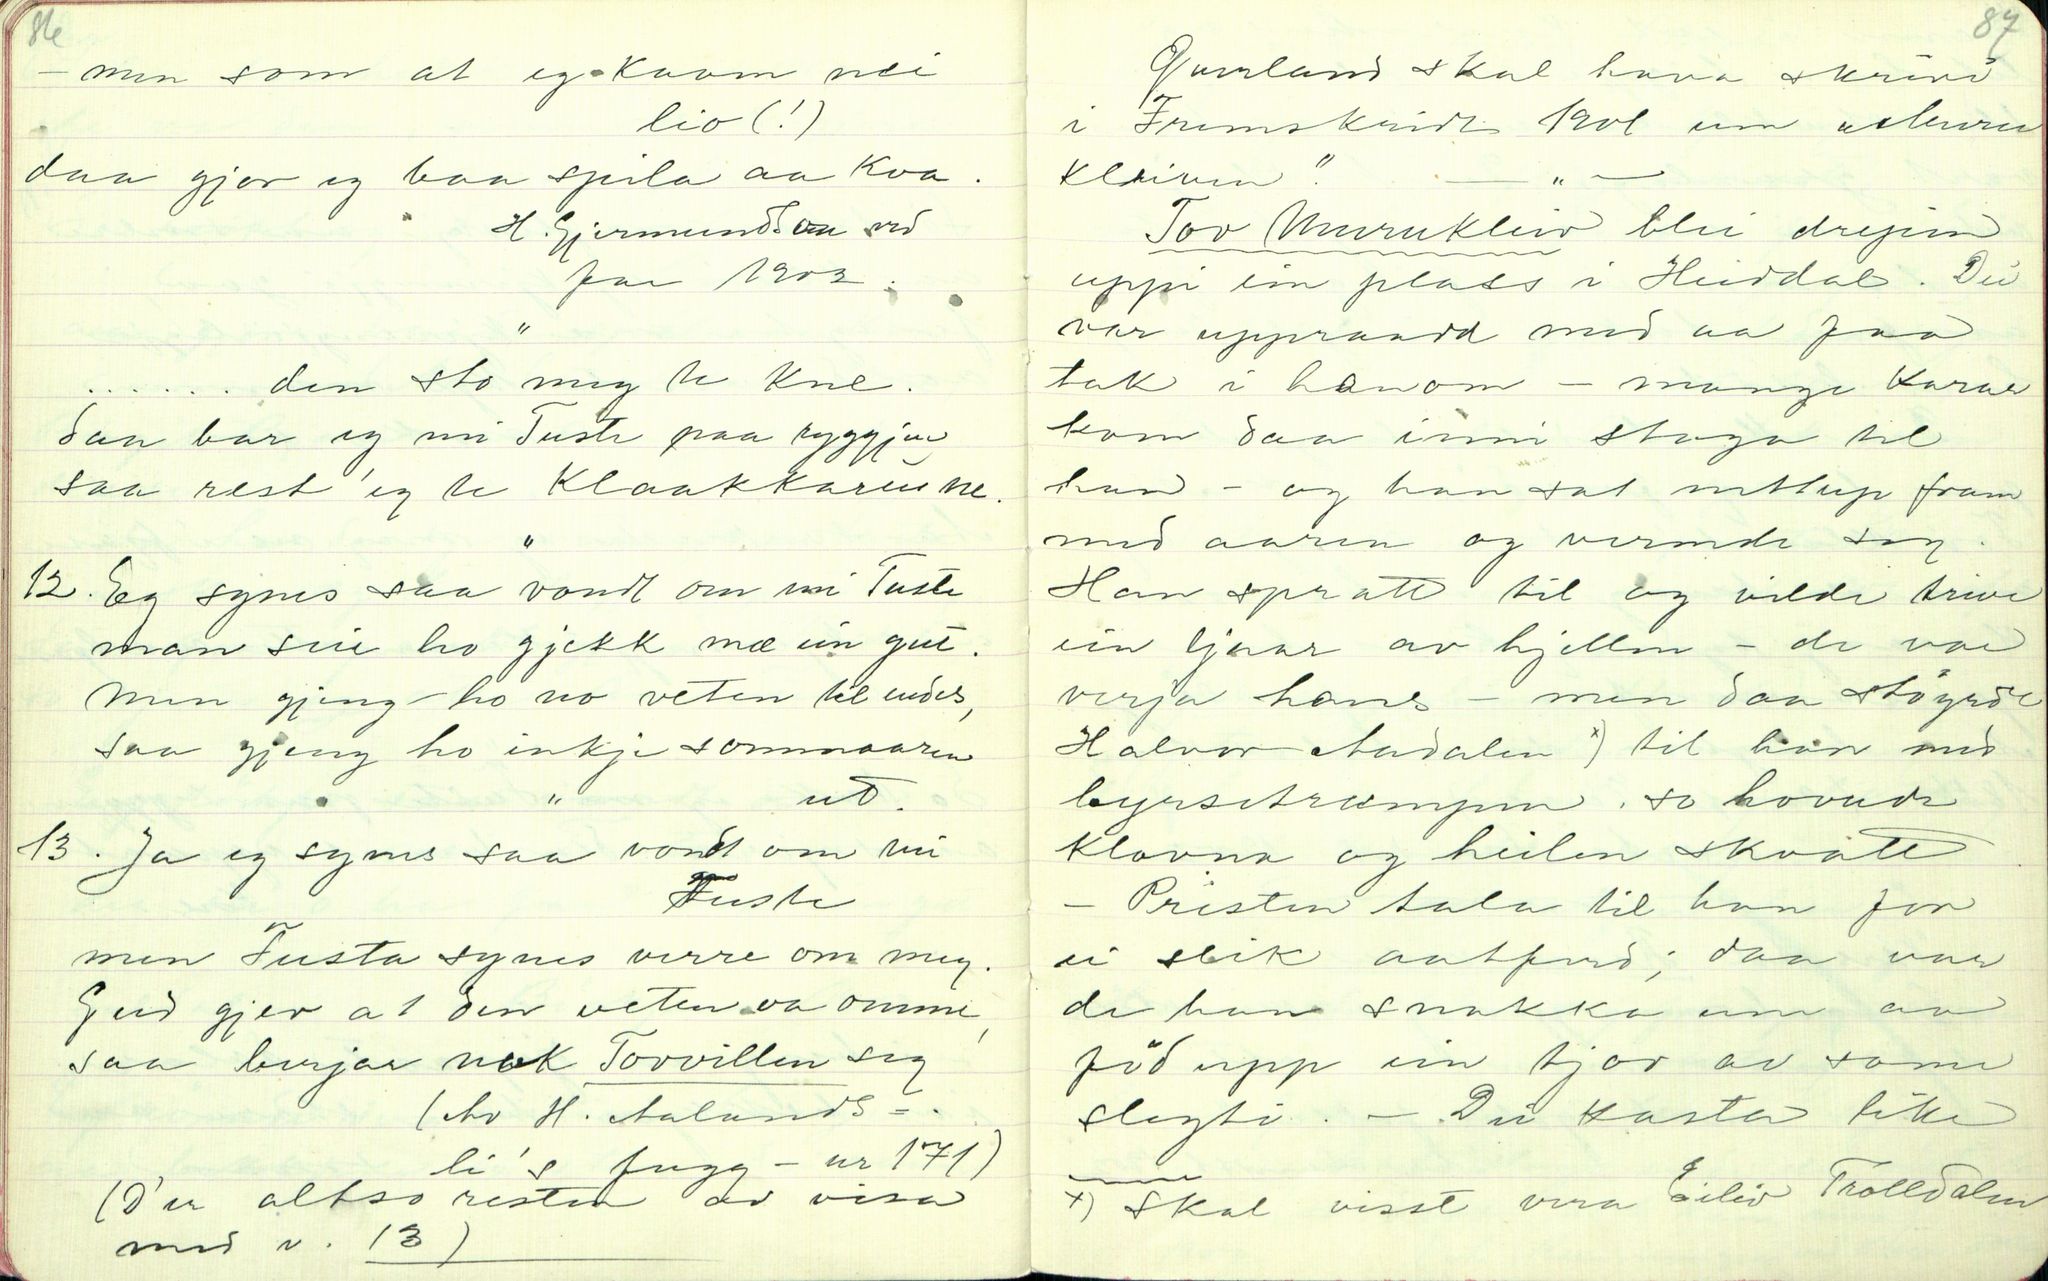 86
– men som at eg kaam nei
lio (!)
daa gjer eg baa spela aa kva.
H. Gjermundson ved
far 1903.
"
. . . . . . den sto meg te kne.
Daa bar eg mi Tuste paa ryggjen
saa rest' eg te Klaakkareine.
"
12. Eg synes saa vondt om mi Tuste
man sei ho gjekk mæ ein gut.
Men gjeng ho no veten til endes,
saa gjeng ho inkje sommaaren
" ut.
13. Ja eg synes saa vondt om mi
Tuste
men Tusta synes verre om meg.
Gud gjev at den veten va omme,
saa berjar nok Tovvillen seg
(Av H. Aalands=
li's fugg – nr 171)
(D'er altso resten av visa
med v. 13)
87
Qverland skal hava skrivi
i Fremskridt 1901 um
kleiven". — " —
Tov Murukleiv blei drepin
uppi ein plass i Heiddal. Dei
var uppraadd med aa faa
tak i hanom – mange karar
kom daa inni stoga til
han – og han sat nettup fram
med aaren og vermde seg.
Han spratt til og vilde trive
ein ljaar av hjellen – de var
verja hans – men daa støyrde
Halvor Aadalen x) til han med
byrsetrumpen, so hovude
klovna og heilen skvatt.
– Presten tala til han for
ei slik aatferd; daa var
de han snakka um aa
fød upp ein tjor av same
slegti. – Dei kasta like
x) Skal visst vera Eiliv Trolldalen